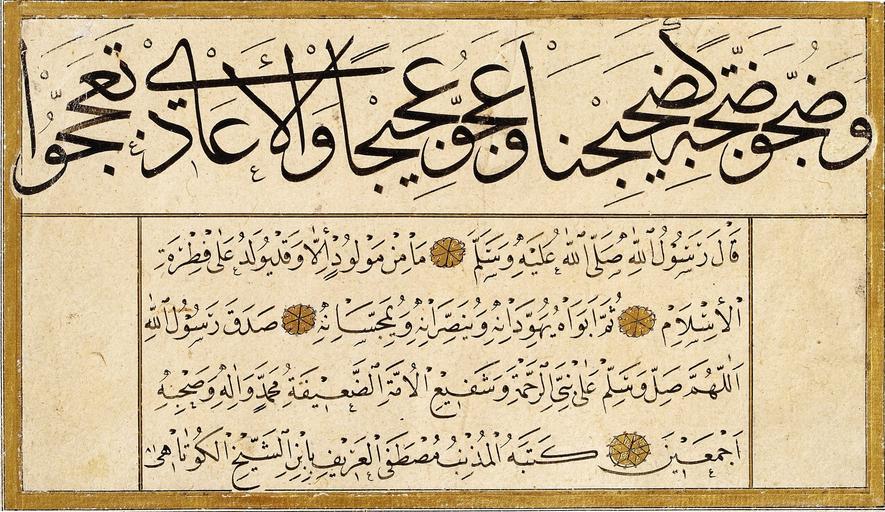 وَضَجُّو كَضَجِيجِنَا وَعَجُّو عَجِيجًا وَالْأَعَادِي تَعَجَّجُوا
قَالَ رَسُولُ اللهِ صَلَّى اللهُ عَلَيْهِ وَسَلَّمَ مَا مِنْ مَوْلُودٍ إِلَّا وَقَدْ يُولَدُ عَلَى فِطْرَةِ
الْاِسْلَامِ ثُمَّ اَبَوَاهُ يُهَوِّدَانِهِ وَيُنَصِّرَانِهِ وَيُمَجِّسَانِهِ صَدَقَ رَسُولُ اللهِ
اَللّٰهُمَّ صَلِّ وَسَلِّمْ عَلَى نَبِيِّ الرَّحْمَةِ وَشَفِيعِ الْاُمَّةِ الضَّعِيفَةِ مُحَمَّدٍ وَاٰلِهِ وَصَحْبِهِ
اَجْمَعِينَ كَتَبَهُ الْمُذْنِبُ مُصْطَفَى الْعَرِيفِ بِابْنِ الشَّيْخِ الْكُوتَاهِي